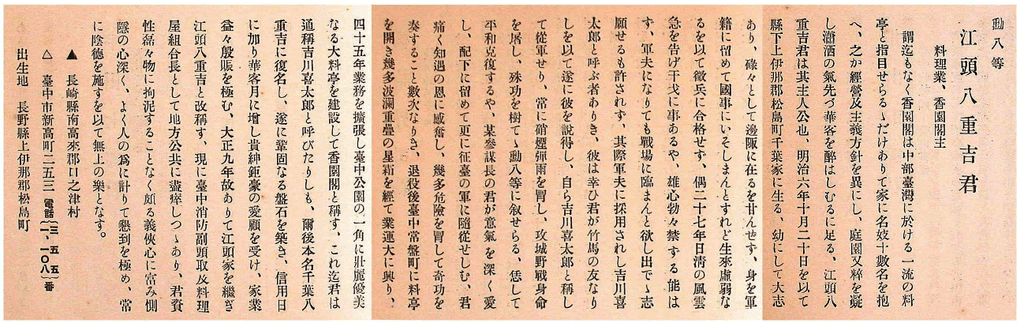 勳八等
江頭八重吉君
料理業、香園閣主
謂迄もなく香園閣は中部臺灣に於ける一流の料
亭と指目せらるゝだけありて家に名妓十數名を抱
へ、之か經營及主義方針を異にし、庭園又粹を凝
し瀟洒の氣先づ華客を醉はしむるに足る、江頭八
重吉君は其主人公也、明治六年十月二十日を以て
縣下上伊那郡松島町千葉家に生る、幼にして大志
あり、碌々として邊陬に在るを甘んせず、身を軍
籍に留めて國事にいそしまんとすれど生來虛弱な
るを以て徵兵に合格せず、偶二十七年日淸の風雲
急を告げ干戈に事あるや、雄心勃々禁する能は
す、軍夫になりても戰場に臨まんと欲し出でゝ志
願せるも許されず、其際軍夫に採用されし吉川喜
太郎と呼ぶ者ありき、彼は幸ひ君が竹馬の友なり
しを以て遂に彼を說得し、自ら吉川喜太郎と稱し
て從軍せり、常に硝煙彈雨を冒し、攻城野戰身命
を屠し、殊功を樹てゝ勳八等に叙せらる、恁して
平和克復するや、某參謀長の君が意氣を深く愛
し、配下に留めて更に征臺の軍に隨從せしむ、君
痛く知遇の恩に感奮し、幾多危險を冒して奇功を
奏すること數次なりき、退役後臺中常盤町に料亭
を開き幾多波瀾重疊の星霜を經て業運大に興り、
四十五年業務を擴張し臺中公園の一角に壯麗優美
なる大料亭を建設して香園閣と稱す、これ迄君は
通稱吉川喜太郎と呼びたりしも、爾後本名千葉八
重吉に復名し、遂に鞏固なる盤石を築き、信用日
に加り華客月に增し貴紳鉅豪の愛顧を受け、家業
益々殷賑を極む、大正九年故ありて江頭家を繼ぎ
江頭八重吉と改稱す、現に臺中消防副頭取及料理
屋組合長として地方公共に盡瘁しつゝあり、君資
性磊々物に拘泥することなく頗る義俠心に富み惻
隱の心深く、よく人の爲に計りて懇到を極め、常
に陰德を施すを以て無上の樂となす。
▲ 長崎縣南高來郡口之津村
△ 臺中市新高町二五三 電話（三一、五〇、五八）番
出生地 長野縣上伊那郡松島町